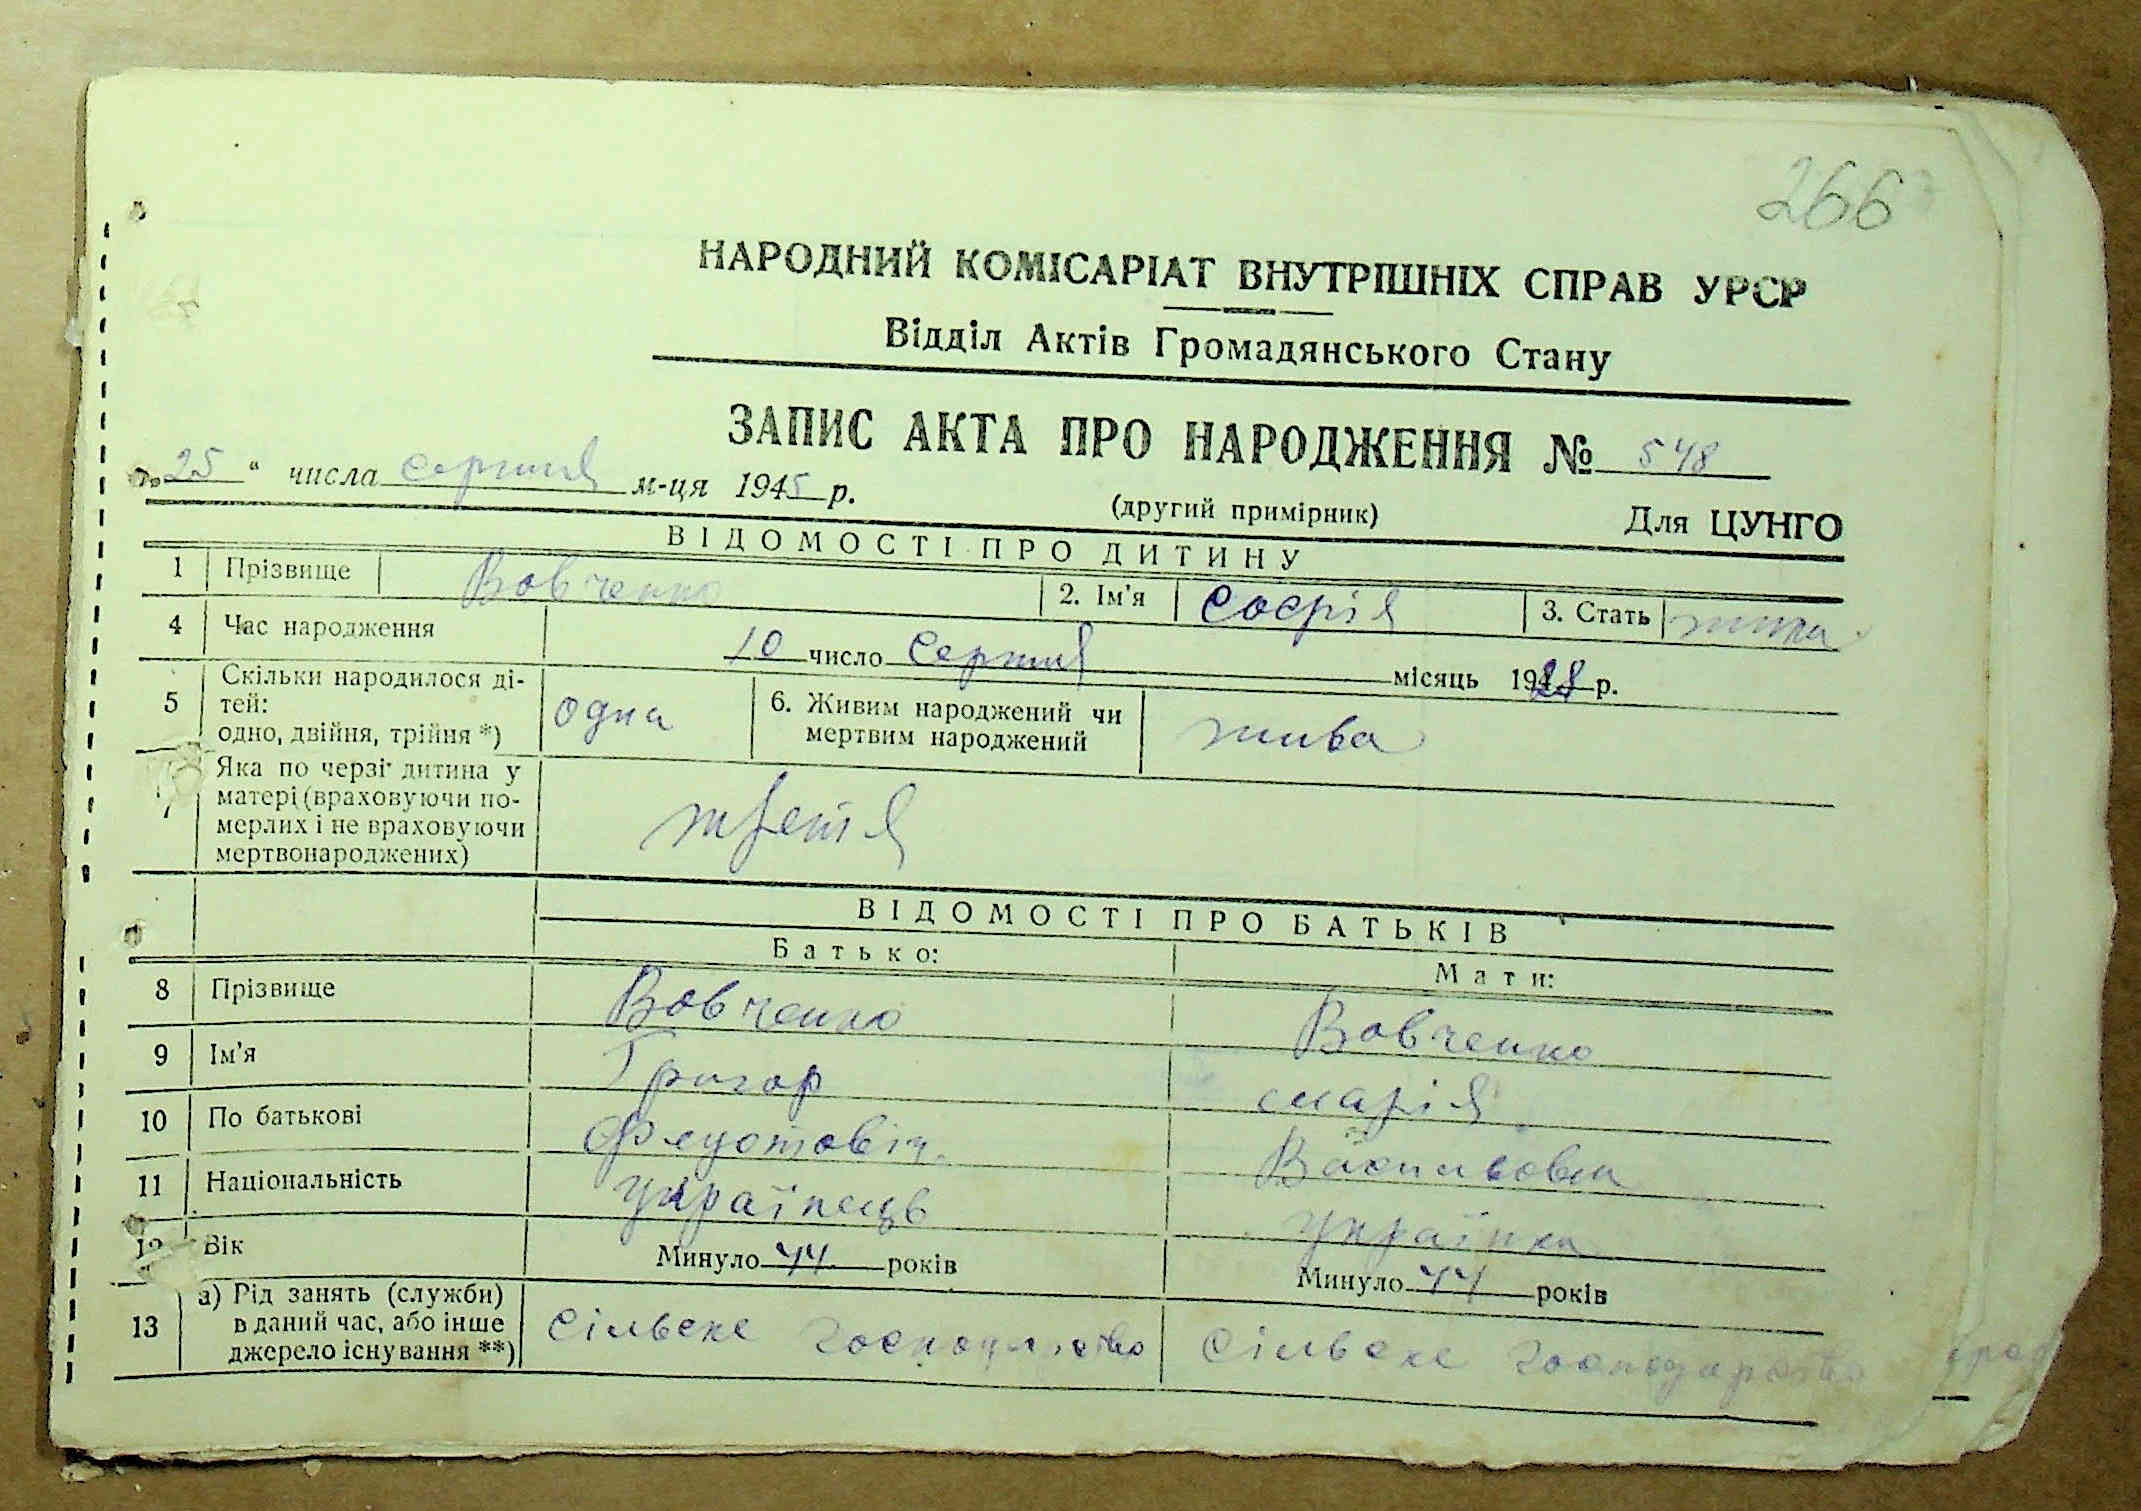 266
НАРОДНИЙ КОМІСАРІАТ ВНУТРІШНІХ СПРАВ УРСР
Відділ Актів Громадянського Стану
ЗАПИС АКТА ПРО НАРОДЖЕННЯ № 548
„25“ числа серпня м-ця 1945 р.
(другий примірник) Для ЦУНГО
ВІДОМОСТІ ПРО ДИТИНУ
1 Прізвище Вовченко 2. Ім'я Софія 3. Стать жіноча
4 Час народження 10 число Серпня місяць 1928 р.
5 Скільки народилося ді-
тей:
одно, двійня, трійня *) одна 6. Живим народжений чи
мертвим народжений жива
7 Яка по черзі дитина у
матері (враховуючи по-
мерлих і не враховуючи
мертвонароджених) третя
ВІДОМОСТІ ПРО БАТЬКІВ
Батько: Мати:
8 Прізвище Вовченко Вовченко
9 Ім'я Григор марія
10 По батькові Васильовна
11 Національність українець українка
12 Вік Минуло 44 років Минуло 44 років
13 а) Рід занять (служби)
в даний час, або інше
джерело існування **) Сільске господарство Сільске господарство